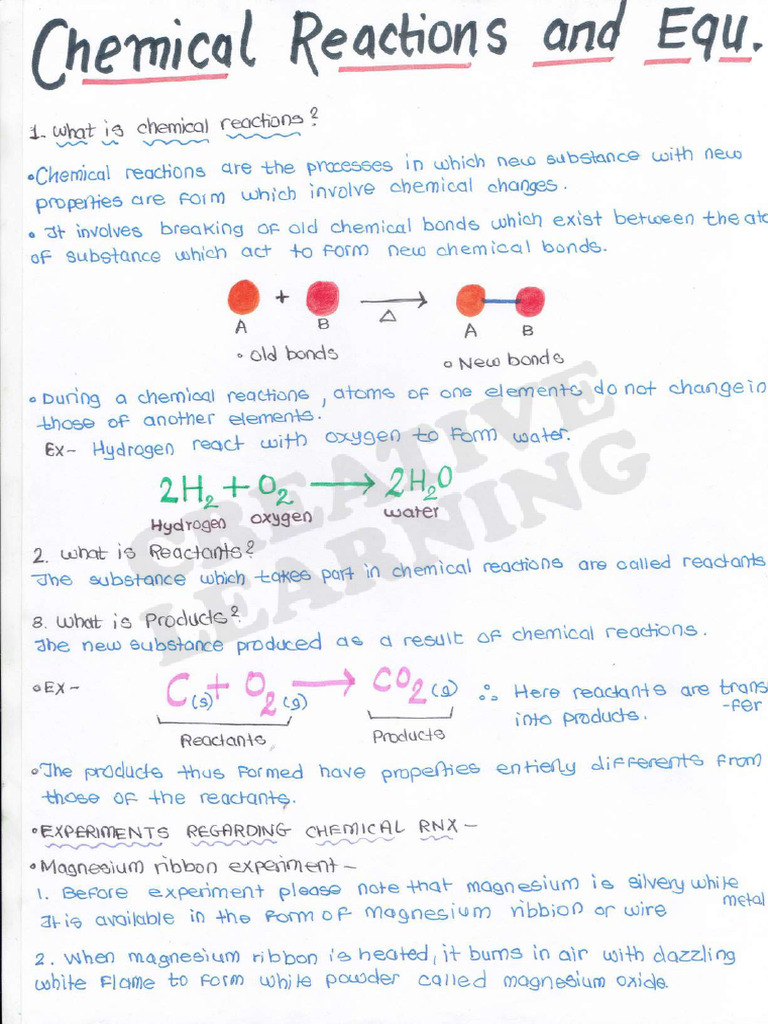 Chemical Reactions and Equ.
1. What is chemical reactions?
• Chemical reactions are the processes in which new substance with new
properties are form which involve chemical changes.
• It involves breaking of old chemical bonds which exist between the ato
of substance which act to form new chemical bonds.
A + B → Δ A B
• Old bonds • New bonds
• During a chemical reactions, atoms of one elements do not change in
those of another elements.
Ex- Hydrogen react with oxygen to form water.
2H₂ + O₂ → 2H₂O
Hydrogen oxygen water
2. What is Reactants?
The substance which takes part in chemical reactions are called reactants
3. What is Products?
The new substance produced as a result of chemical reactions.
• EX- C(s) + O₂(g) → CO₂(g) ∴ Here reactants are trans
-fer
into products.
Reactants Products
• The products thus formed have properties entierly differents from
those of the reactants.
• EXPERIMENTS REGARDING CHEMICAL RNX -
• Magnesium ribbon experiment -
1. Before experiment please note that magnesium is silvery white
metal
It is available in the form of magnesium ribbion or wire
2. When magnesium ribbon is heated, it burns in air with dazzling
white flame to form white powder called magnesium oxide.
CREATIVE
LEARNING